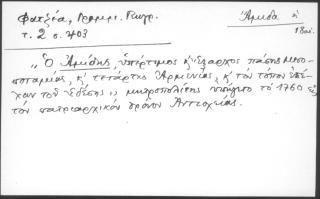 Φατζέα, Γραμμ. Γεωγρ.
τ. 2 σ. 403
Ἀμίδα ἡ
18αι.
„ Ὁ Ἀμίδης, ὑπέρτιμος κ' ἔξαρχος πάσης Μεσο-
ποταμίας, κ' τετάρτης Ἀρμενίας, κ' τὸν τόπον ἐπέ-
χων τοῦ Ἐδέσης „ μητροπολίτης ὑπῆγετο τὸ 1760 εἰς
τὸν πατριαρχικὸν θρόνον Ἀντιοχείας.